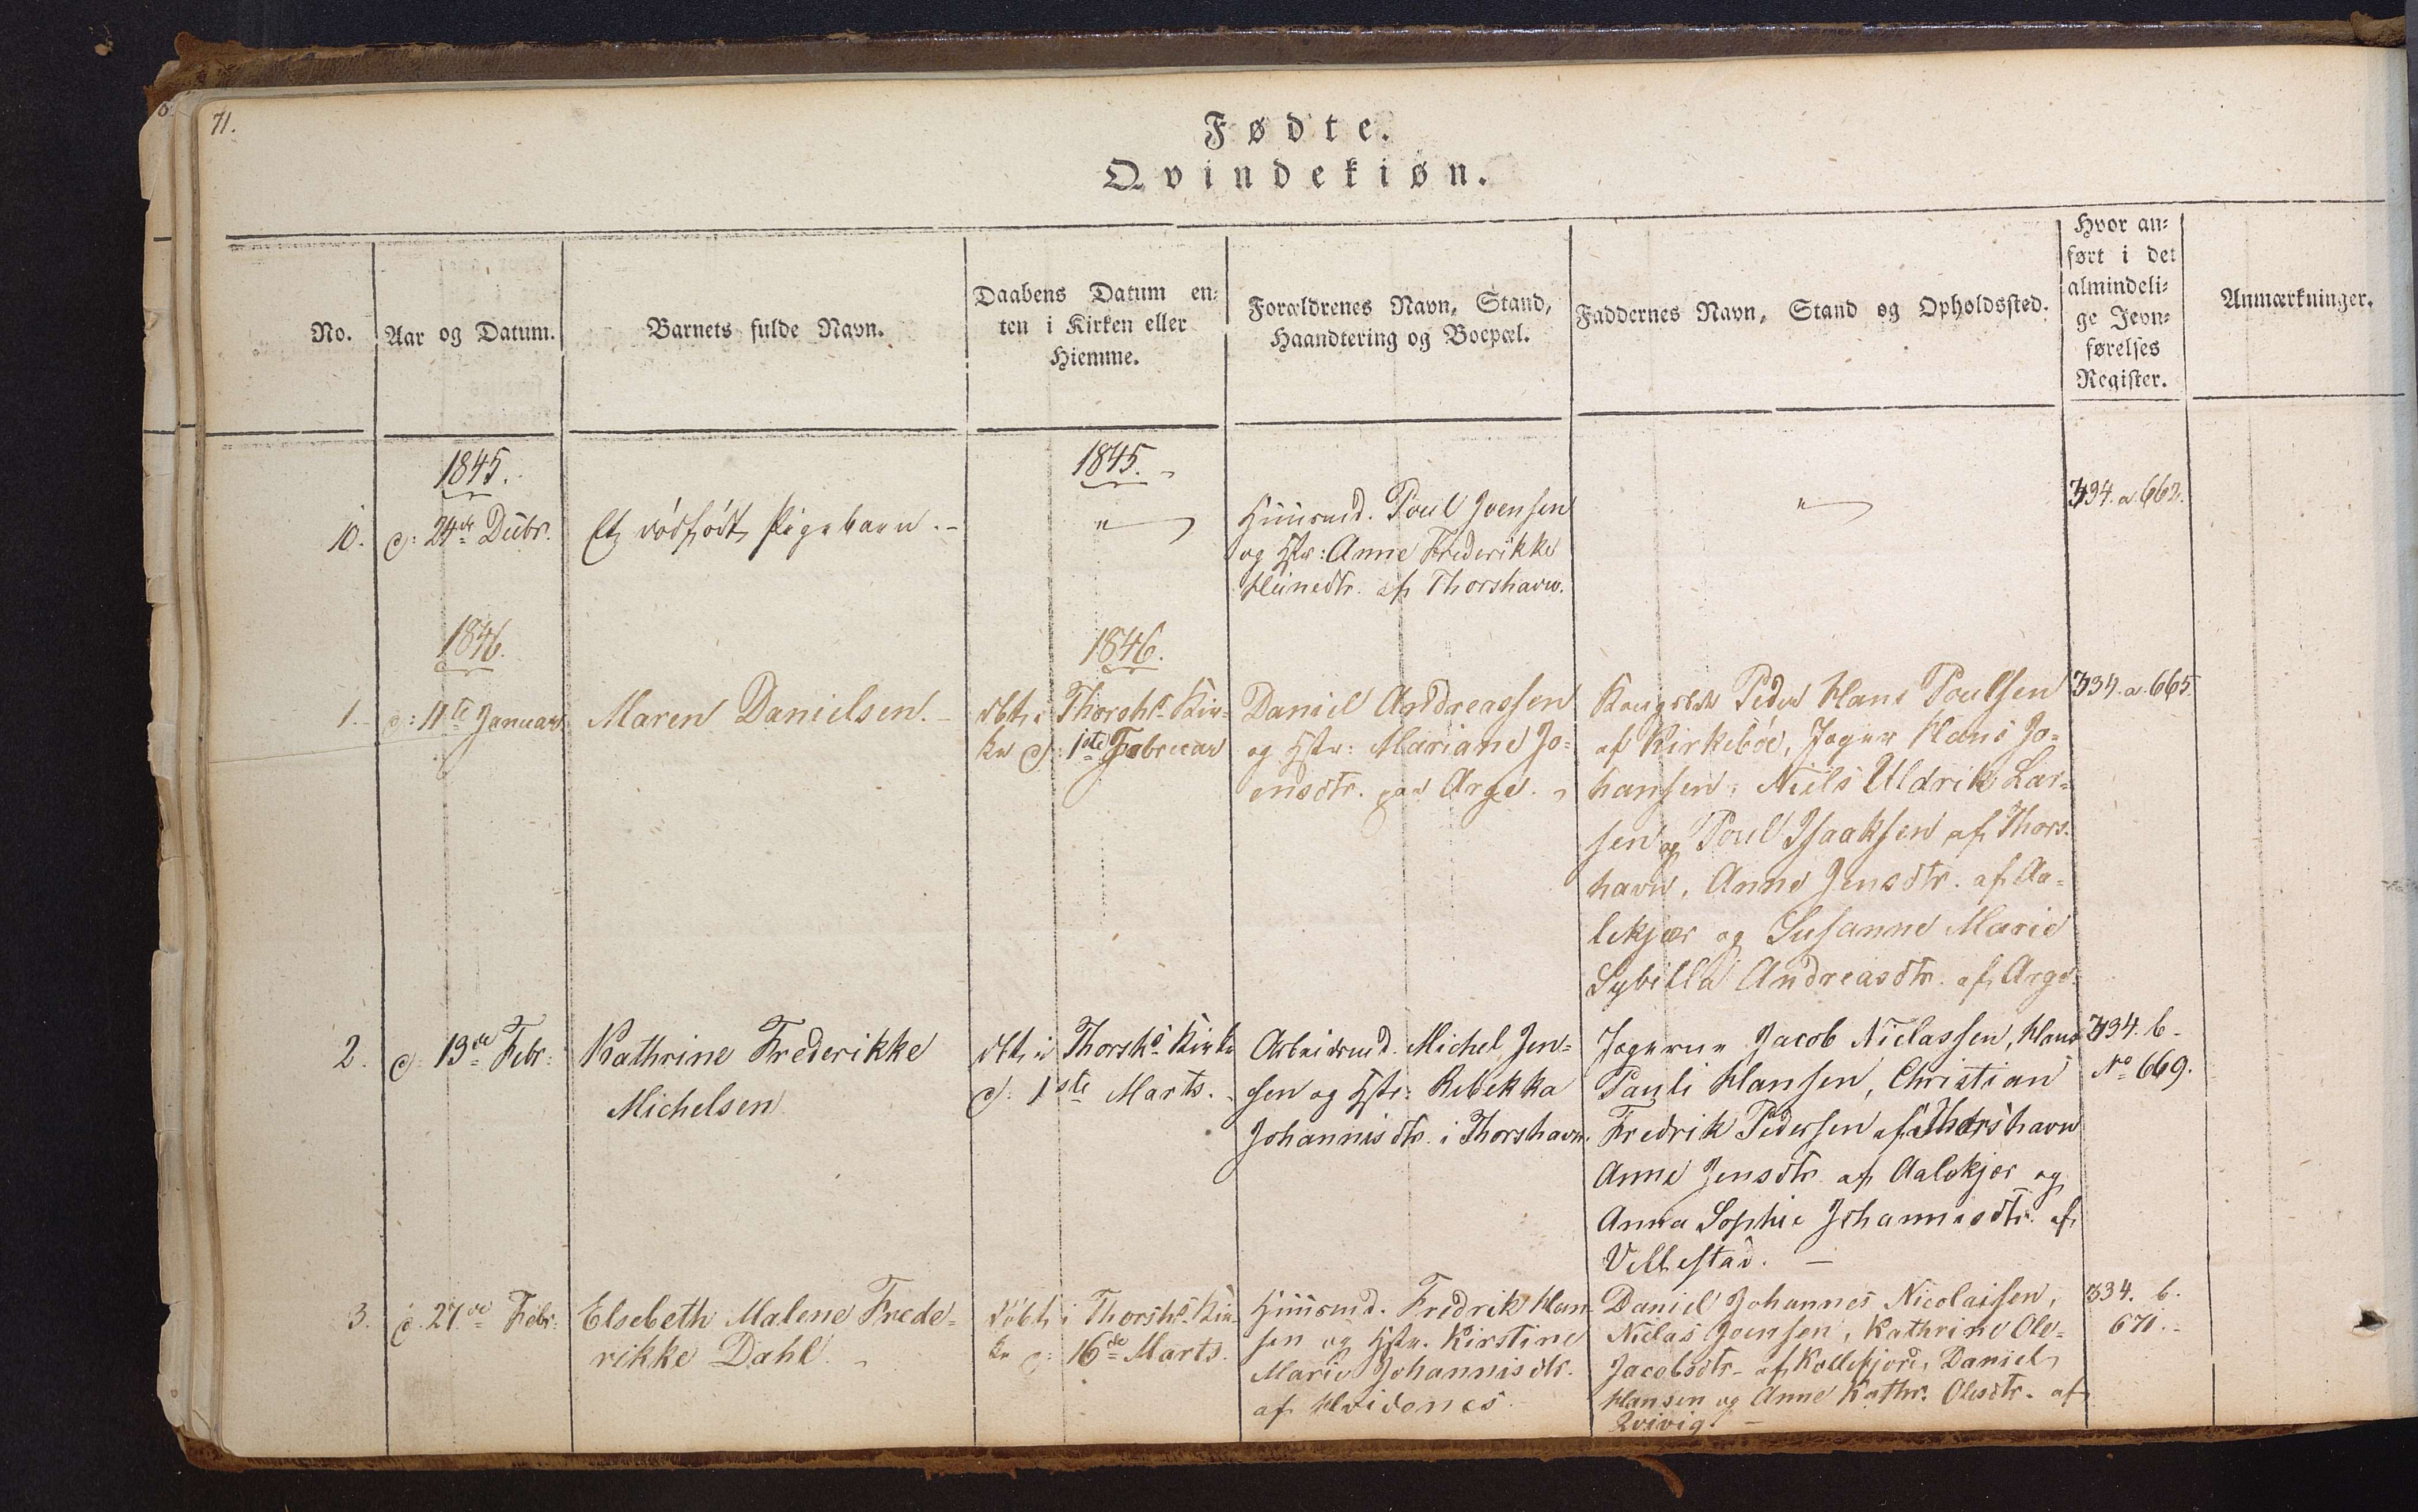 71.
Fødte.
Qvindekiøn.
No.
Aar og Datum.
Barnets fulde Navn.
Daabens Datum en=
ten i Kirken eller
Hiemme.
Forældrenes Navn, Stand,
Haandtering og Boepæl.
Faddernes Navn, Stand og Opholdssted.
Hvor an=
ført i det
almindeli=
ge Jevn=
førelses
Register.
Anmærkninger.
1845.
1845.
10.
d: 24de Decbr.
Et dødfødt Pigebarn.-
"
Huusmd. Poul Joensen
og Hstr: Anne Frederikke
Heinedtr. af Thorshavn.
"
334. a 662.
1846.
1846.
1.
d: 11te Januar
Maren Danielsen.
dbt. i Thorshs. Kir=
ke d: 1ste Februar
Daniel Andreassen
og Hstr: Mariane Jo=
ensdtr. paa Arge.
Kongsbd. Peder Hans Poulsen
af Kirkebøe, Jæger Hans Jo=
hansen, Niels Uldrik Lar=
sen og Poul Isaaksen af Thors=
havn, Anne Jensdtr. af Aa=
lekjær og Susanne Marie
Sybilla Andreasdtr. af Arge.
334. a 665.
2.
d: 13de Febr:
Kathrine Frederikke
Michelsen
dbt. i Thorshs. Kirke
d: 1ste Marts.
Arbeidsmd. Michel Jen=
sen og Hstr: Rebekka
Johannisdtr. i Thorshavn.
Jægerne Jacob Niclassen, Hans
Pauli Hansen, Christian
Fredrik Pedersen af Thorshavn
Anne Jensdtr. af Aalekjær og
Anna Sophie Johannesdtr. af
Velbestad.
334. b.
No 669.
3.
d. 27de Febr:
Elsebeth Malene Frede=
rikke Dahl.
døbt i Thorshs. Kir=
ke d: 16de Marts.
Huusmd. Fredrik Han=
sen og Hstr. Kirstine
Marie Johannisdtr.
af Hvidenes
Daniel Johannes Nicolaisen,
Niclas Joensen, Kathrine Ole=
Jacobsdtr. af Kollefjord, Daniel
Hansen og Anne Kathr. Olesdtr. af
Qvivig.
334. b.
671.